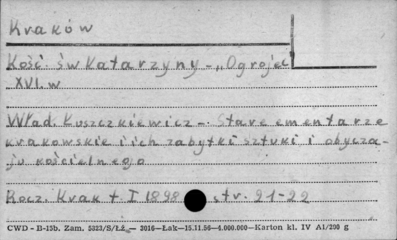 Kraków
Kość św Katarzyny - „Ogrojec
XVI. w
Wład. Łuszczkiewicz -. Stare cmentarze
krakowskie i ich zabytki sztuki i obycza-
ju kościelnego
Rocz. Krak t. I 1898 str. 21-22
CWD - B-15b. Zam. 5323/S/Łż — 3016—Łak—15.11.56—4.000.000—Karton kl. IV A1/290 g